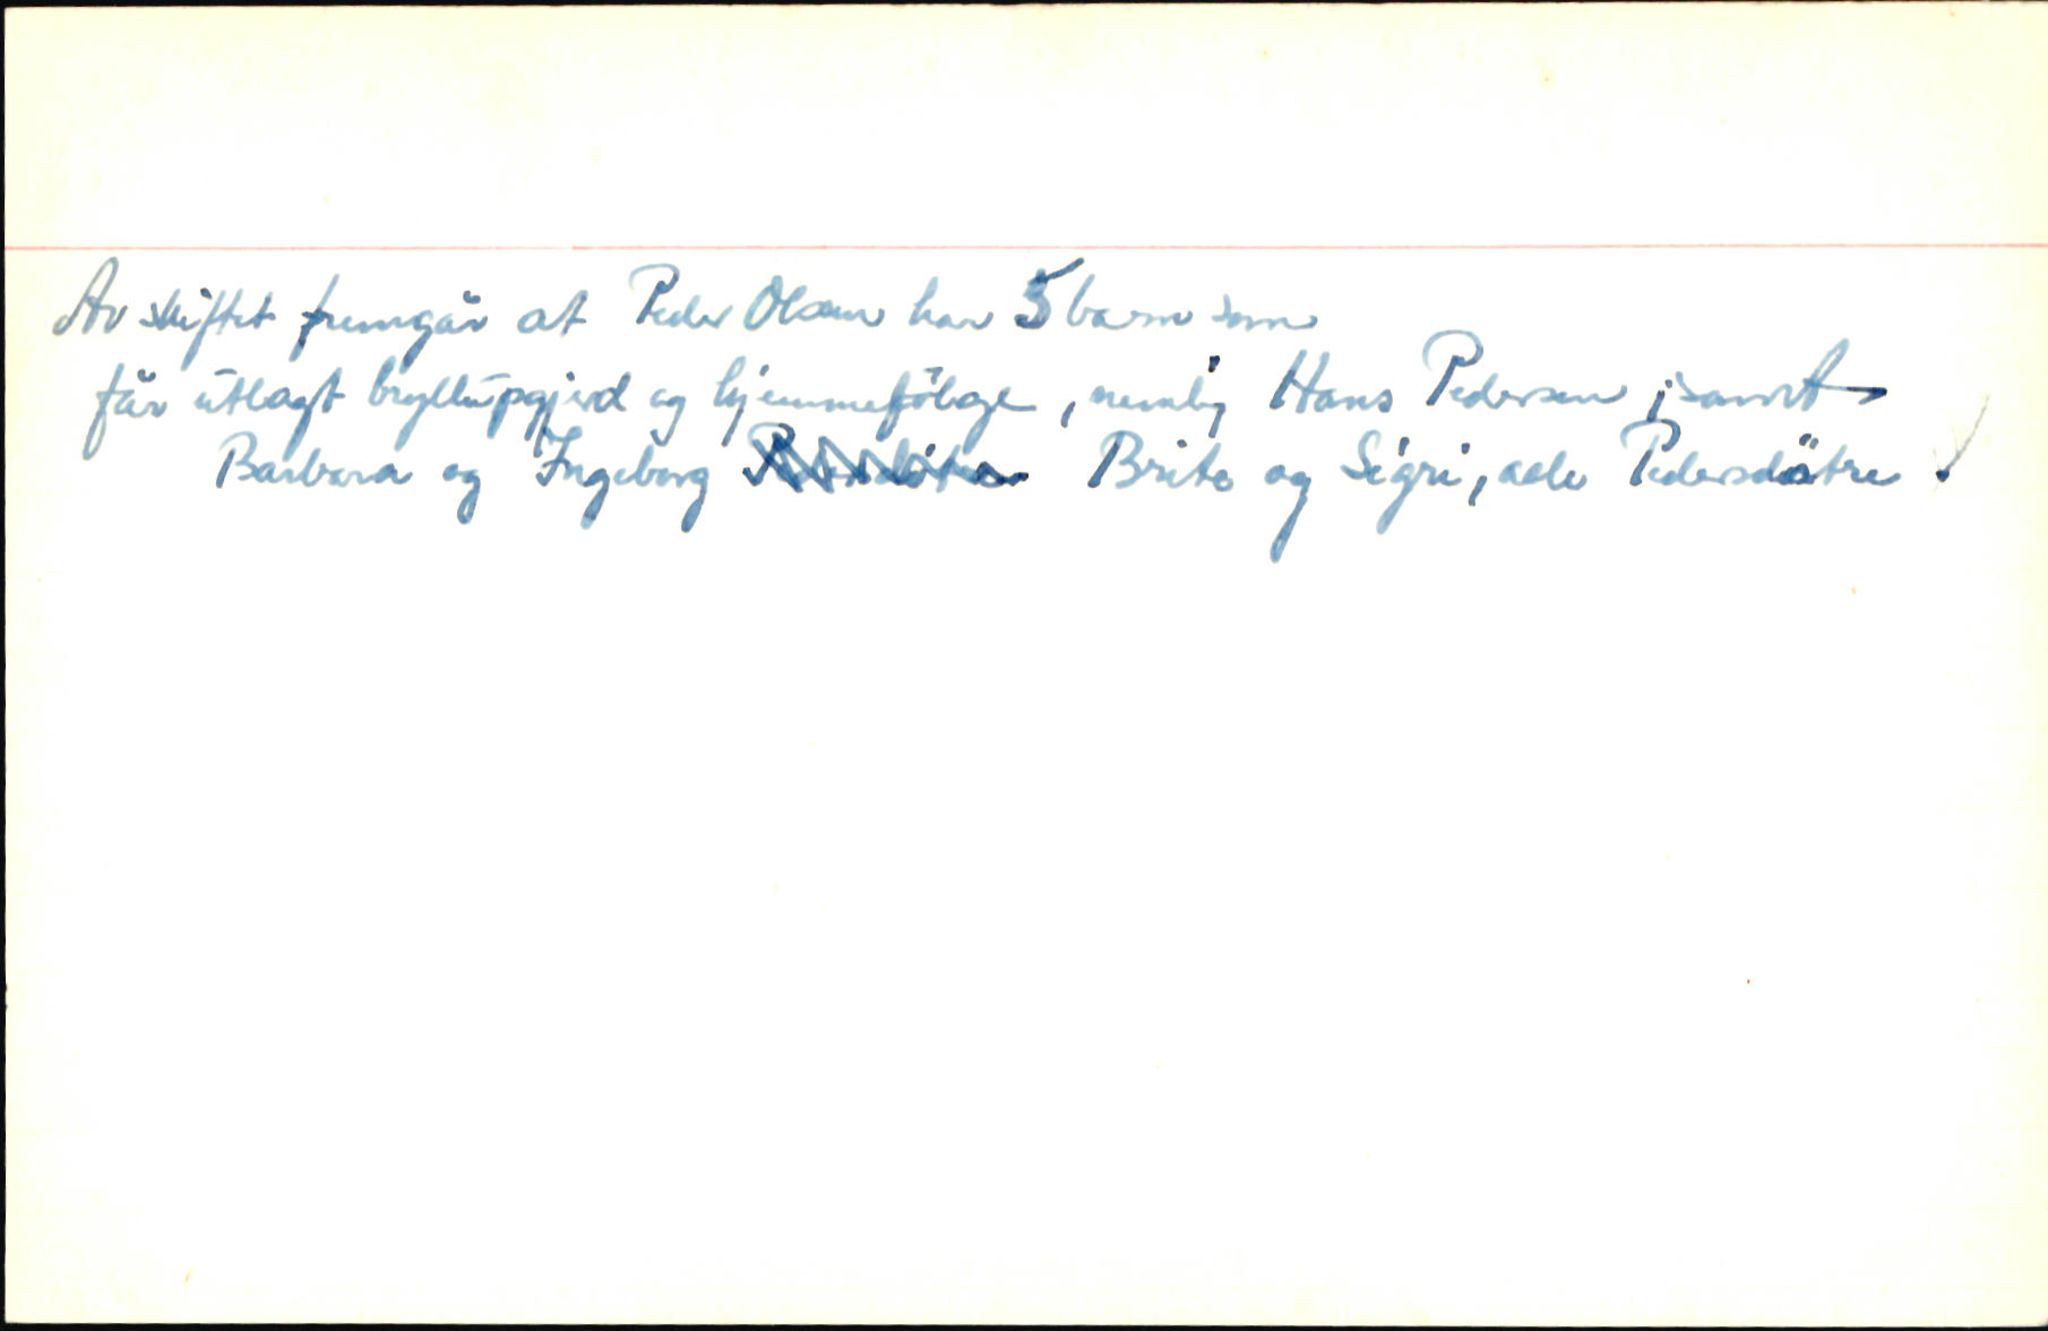 Av skiftet fremgår at Peder Olsen har 5 barn som
får utlagt bryllupgjerd og hjemmefölge, nemlig Hans Pedersen, samt
Barbara og Ingeborg Brite og Sigri, alle Pedersdötre.